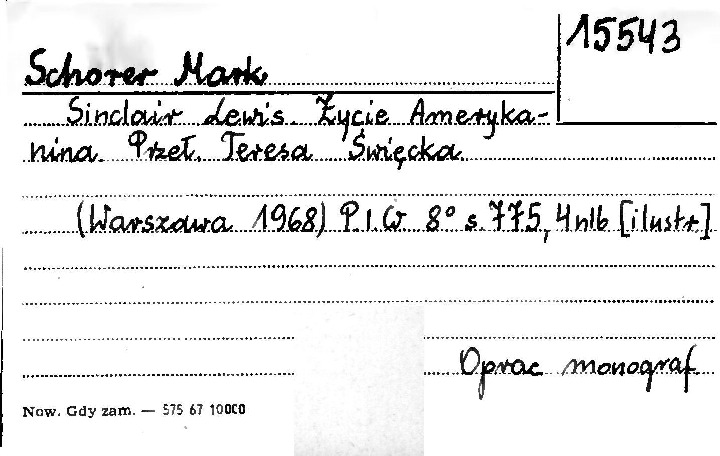 15543
Schorer Mark.
Sinclair Lewis. Życie Ameryka-
nina. Przeł. Teresa Święcka.
(Warszawa 1968) P.I.W 8° s. 775, 4 nlb [ilustr]
Oprac monograf.
Now. Gdy zam. — 575 67 10000